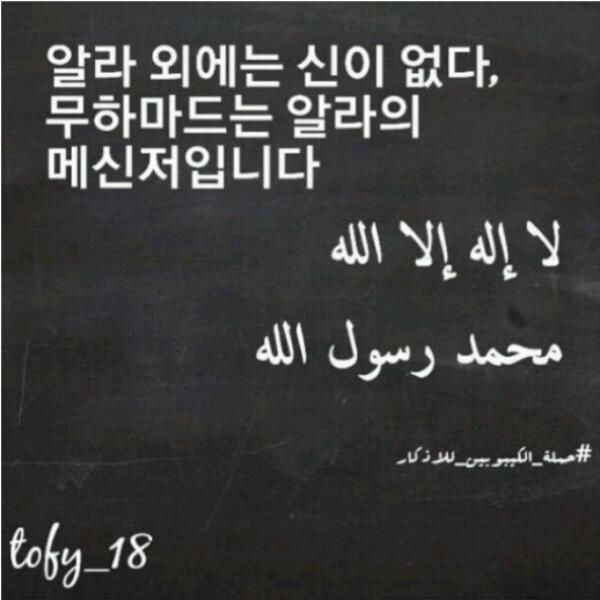 알라 외에는 신이 없다,
무하마드는 알라의
메신저입니다
لا إله إلا الله
محمد رسول الله
#حملة_الكيبوبين_للاذكار
tofy_18